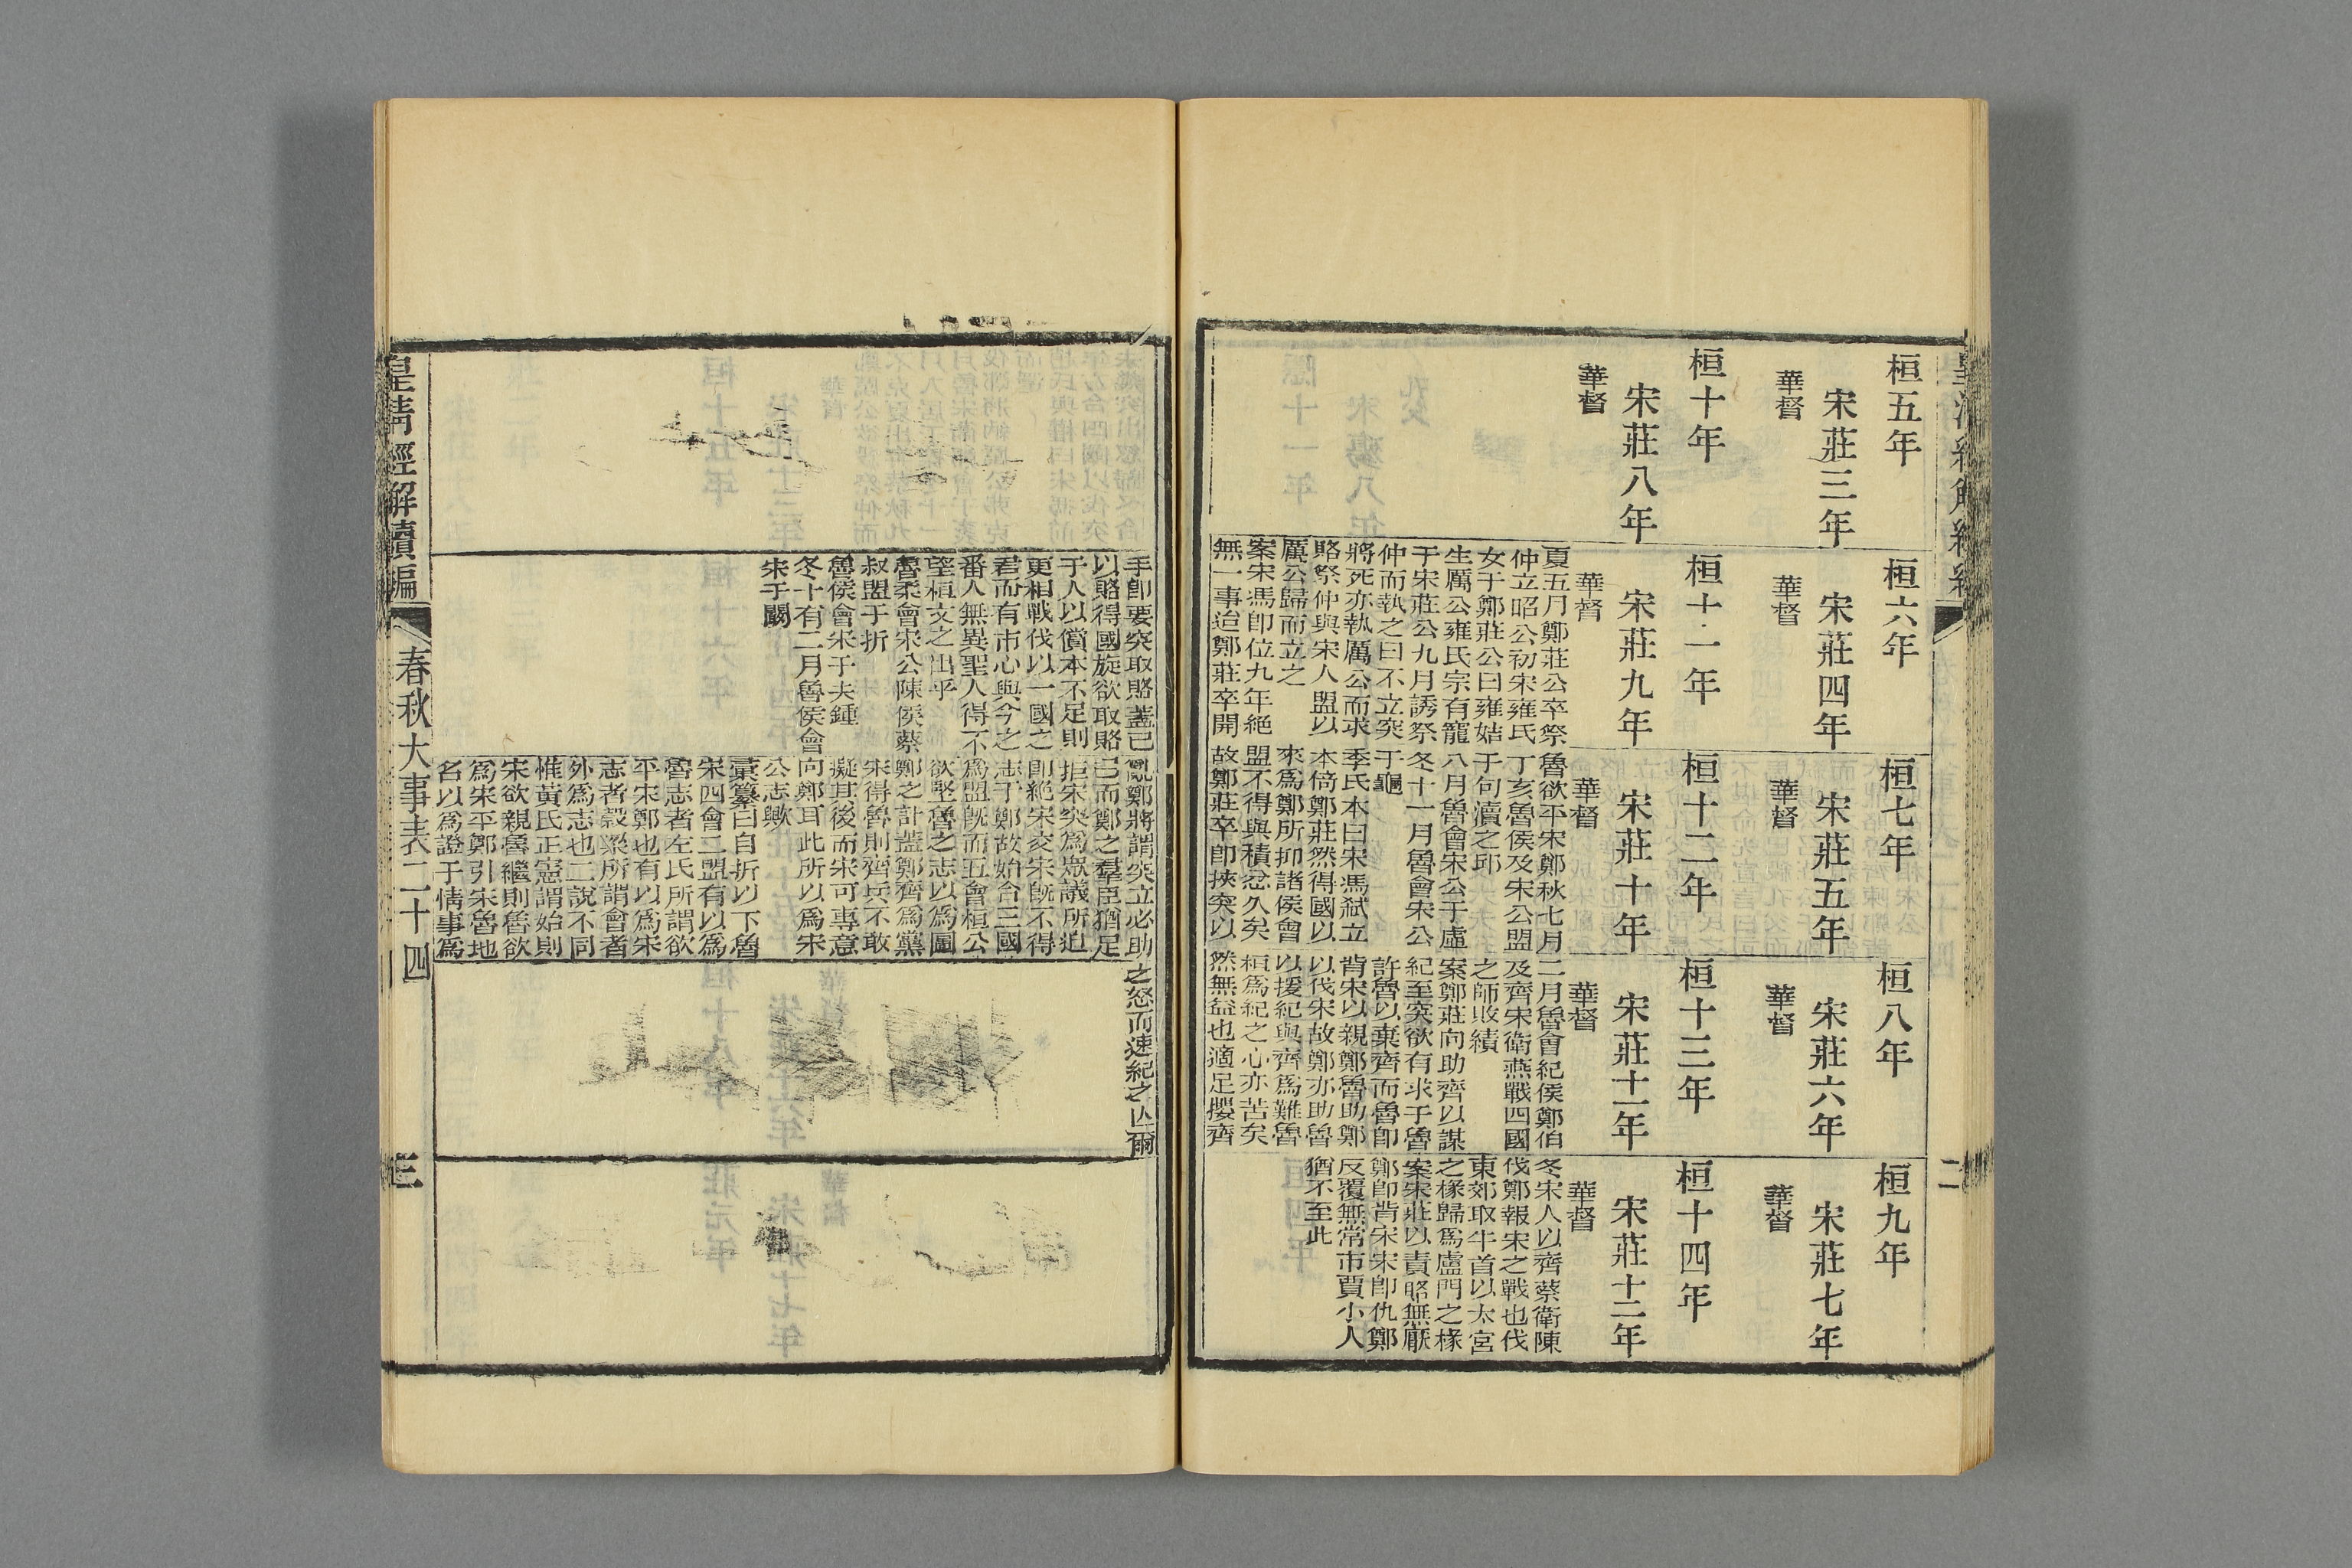 桓五年
宋莊三年
華督
桓六年
宋莊四年
華督
桓七年
宋莊五年
華督
桓八年
宋莊六年
華督
桓九年
宋莊七年
華督
桓十年
宋莊八年
華督
桓十一年
宋莊九年
華督
夏五月鄭莊公卒祭
仲立昭公初宋雍氏
女于鄭莊公曰雍姞
生厲公雍氏宗有寵
于宋莊公九月誘祭
仲而執之曰不立突
將死亦執厲公而求
賂祭仲與宋人盟以
厲公歸而立之
案宋馮卽位九年絕
無一事造鄭莊卒開
桓十二年
宋莊十年
華督
魯欲平宋鄭秋七月
丁亥魯侯及宋公盟
于句瀆之邱
八月魯會宋公于虛
冬十一月魯會宋公
于龜
季氏本曰宋馮弑立
本倚鄭莊然得國以
來爲鄭所抑諸侯會
盟不得與積忿久矣
故鄭莊卒卽挾突以
桓十三年
宋莊十一年
華督
二月魯會紀侯鄭伯
及齊宋衛燕戰四國
之師敗績
案鄭莊向助齊以謀
紀至突欲有求于魯
許魯以棄齊而魯卽
背宋以親鄭魯助鄭
以伐宋故鄭亦助魯
以援紀與齊爲難魯
桓爲紀之心亦苦矣
然無益也適足攖齊
桓十四年
宋莊十二年
華督
冬宋人以齊蔡衛陳
伐鄭報宋之戰也伐
東郊取牛首以太宮
之椽歸爲盧門之椽
案宋莊以責賂無厭
鄭卽背宋宋卽仇鄭
反覆無常市賈小人
猶不至此
二
手卽要突取賂蓋已
以賂得國旋欲取賂
于人以償本不足則
更相戰伐以一國之
君而有市心與今之
番人無異聖人得不
望桓文之出乎
魯柔會宋公陳侯蔡
叔盟于折
魯侯會宋于夫鍾
冬十有二月魯侯會
宋于闞
亂鄭將謂突立必助
己而鄭之羣臣猶足
拒宋突爲眾議所迫
卽絕宋交宋旣不得
志于鄭故始合三國
爲盟旣而五會桓公
欲堅魯之志以爲圖
鄭之計蓋鄭齊爲黨
宋得魯則齊兵不敢
擬其後而宋可專意
向鄭耳此所以爲宋
公志歟
彙纂曰自折以下魯
宋四會二盟有以爲
魯志者左氏所謂欲
平宋鄭也有以爲宋
志者穀梁所謂會者
外爲志也二說不同
惟黃氏正憲謂始則
宋欲親魯繼則魯欲
爲宋平鄭引宋魯地
名以爲證于情事爲
之怒而速紀之亾爾
皇清經解續編
春秋大事表二十四
三